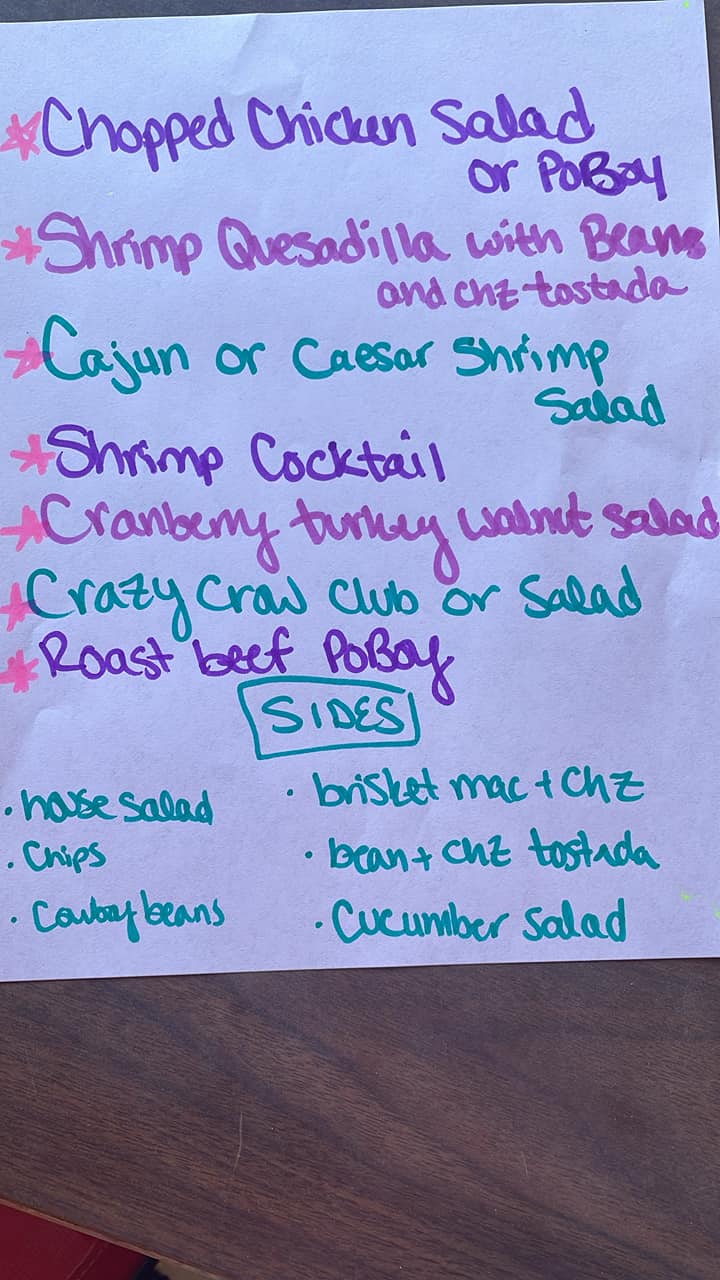 Chopped Chicken Salad
or PoBoy
Shrimp Quesadilla with Beans
and chz tostada
Cajun or Caesar Shrimp
Salad
Shrimp Cocktail
Cranberry turkey walnut salad
Crazy Craw Club or Salad
Roast beef PoBoy
SIDES
• house salad
• Chips
• Cowboy beans
• brisket mac + ChZ
• bean + chz tostada
• Cucumber Salad